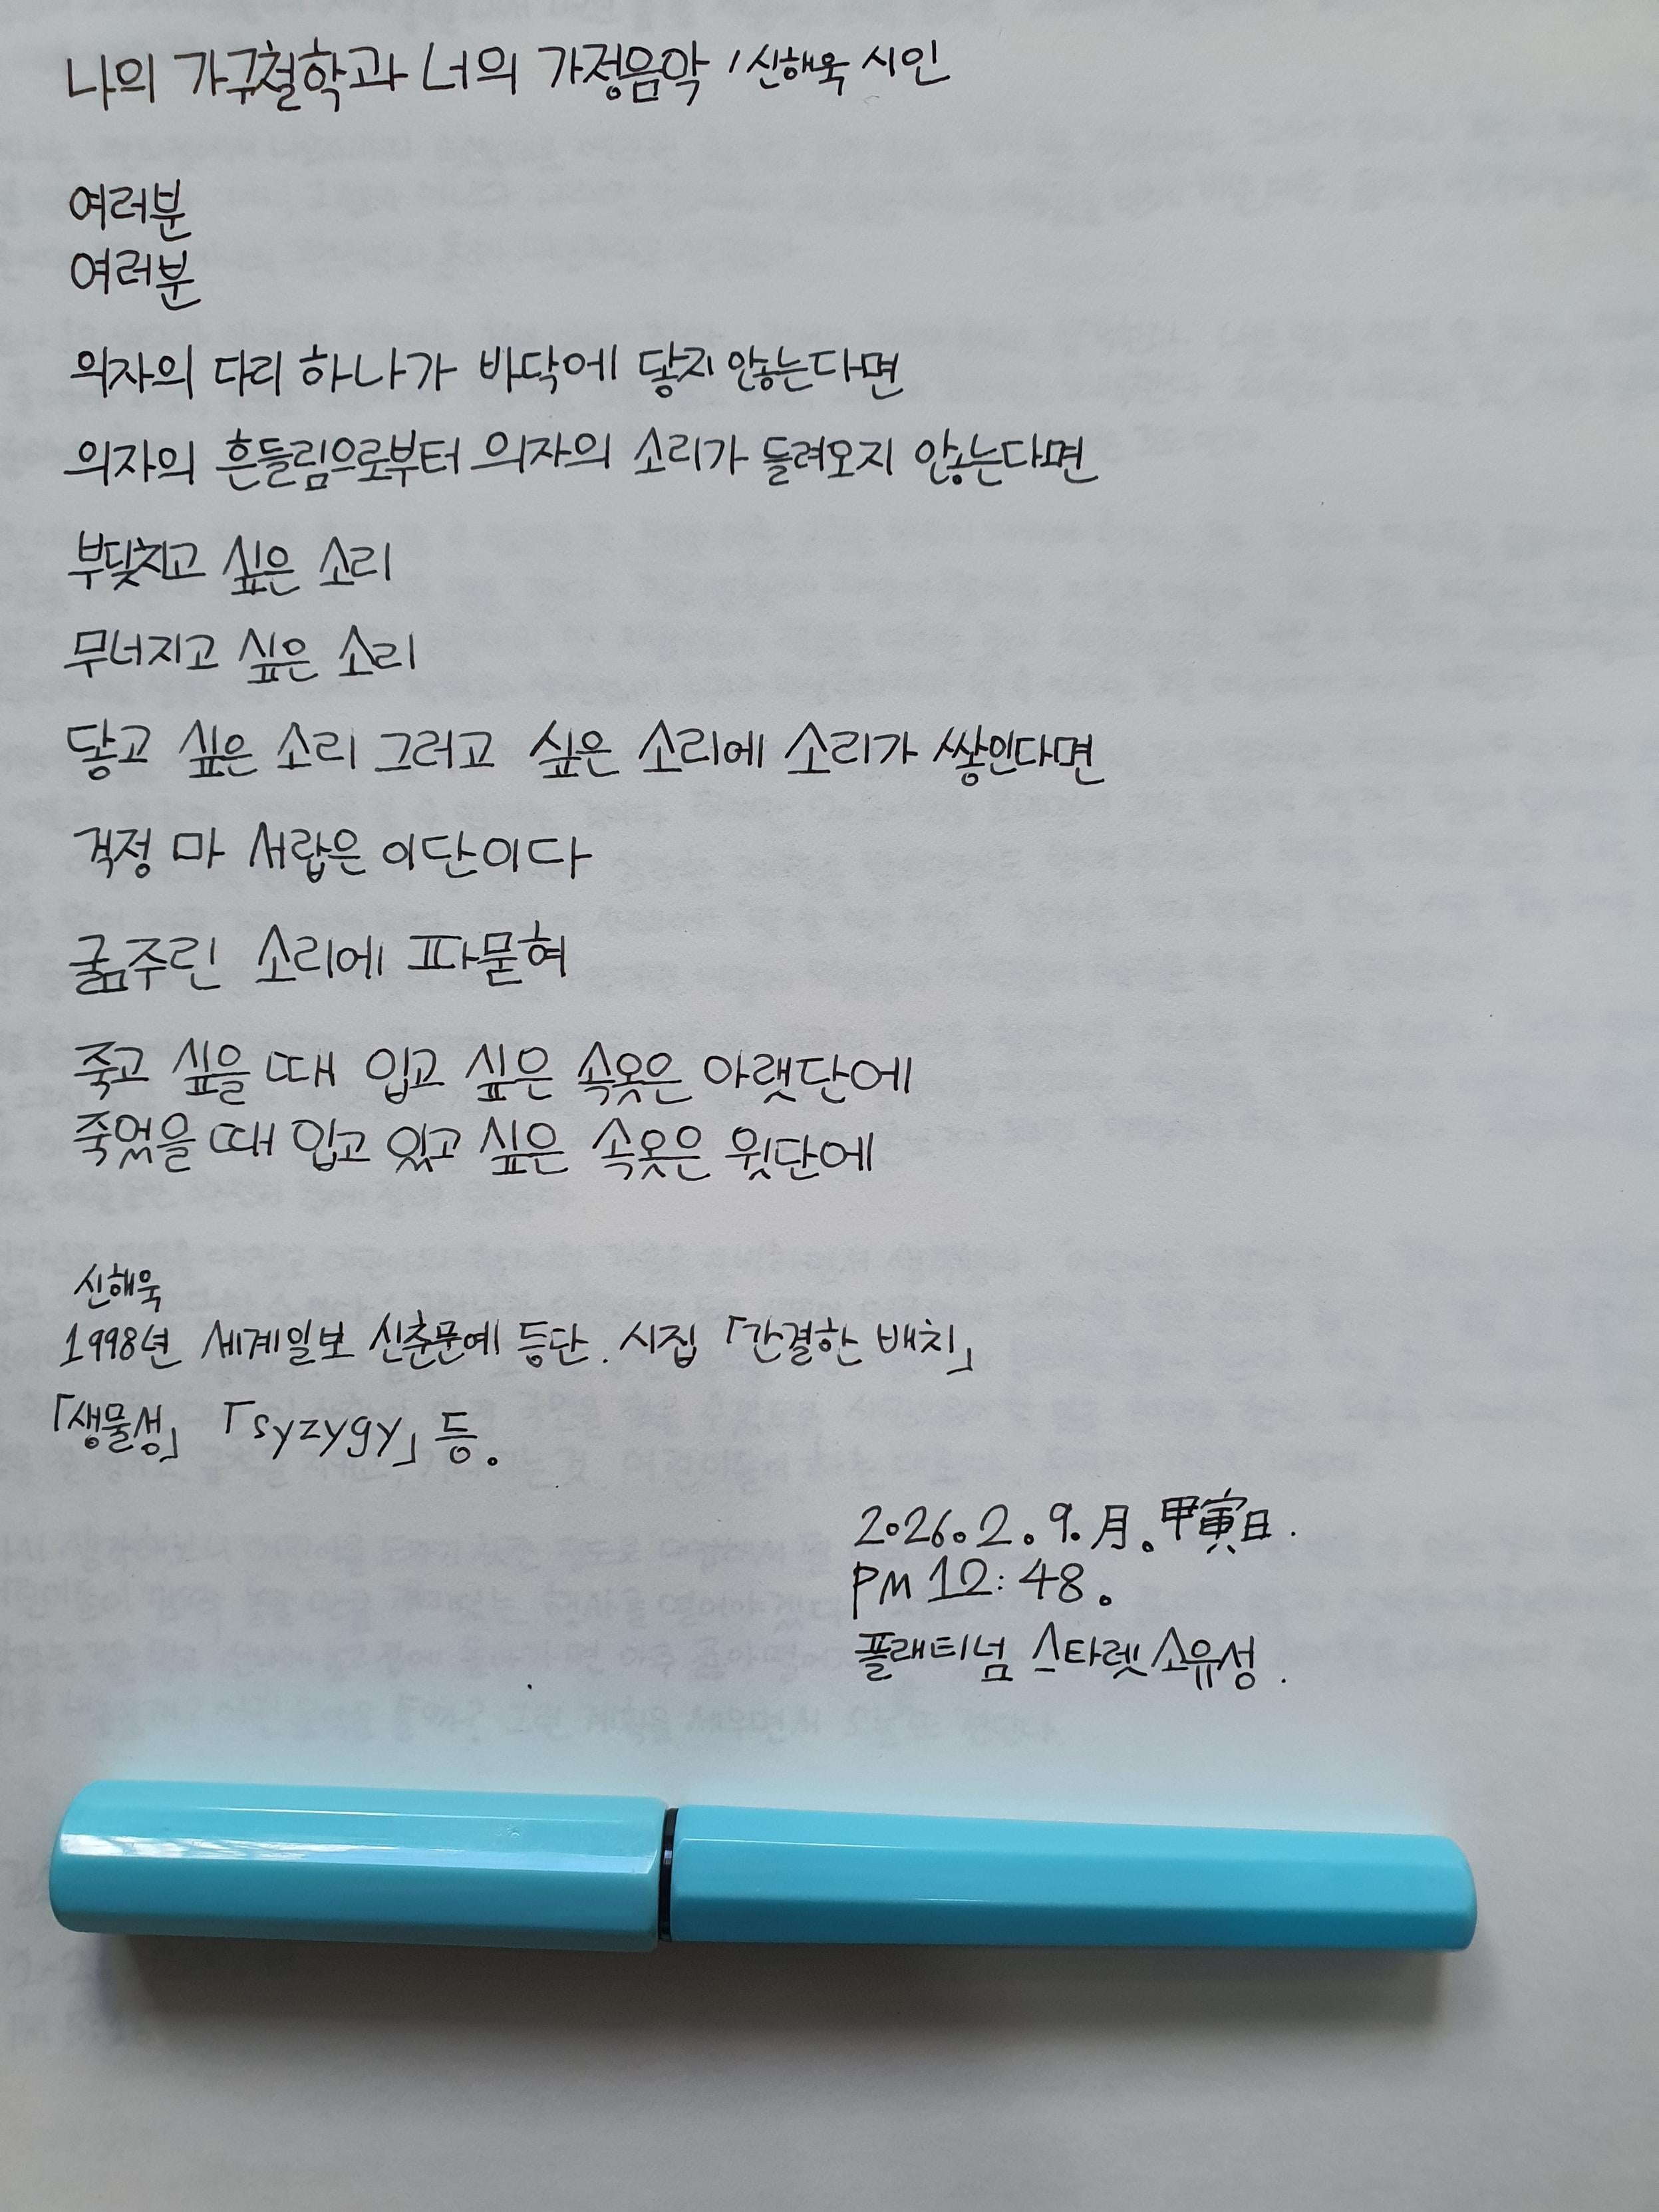 나의 가구철학과 너의 가정음악 / 신해욱 시인
여러분
여러분
의자의 다리 하나가 바닥에 닿지 않는다면
의자의 흔들림으로부터 의자의 소리가 들려오지 않는다면
부딪치고 싶은 소리
무너지고 싶은 소리
닿고 싶은 소리 그러고 싶은 소리에 소리가 쌓인다면
걱정 마 서랍은 이단이다
굶주린 소리에 파묻혀
죽고 싶을 때 입고 싶은 속옷은 아랫단에
죽었을 때 입고 있고 싶은 속옷은 윗단에
신해욱
1998년 세계일보 신춘문예 등단. 시집 「간결한 배치」
「생물성」 「syzygy」 등.
2026. 2. 9. 月. 甲寅日.
PM 12:48.
플래티넘 스타렛 소유성.